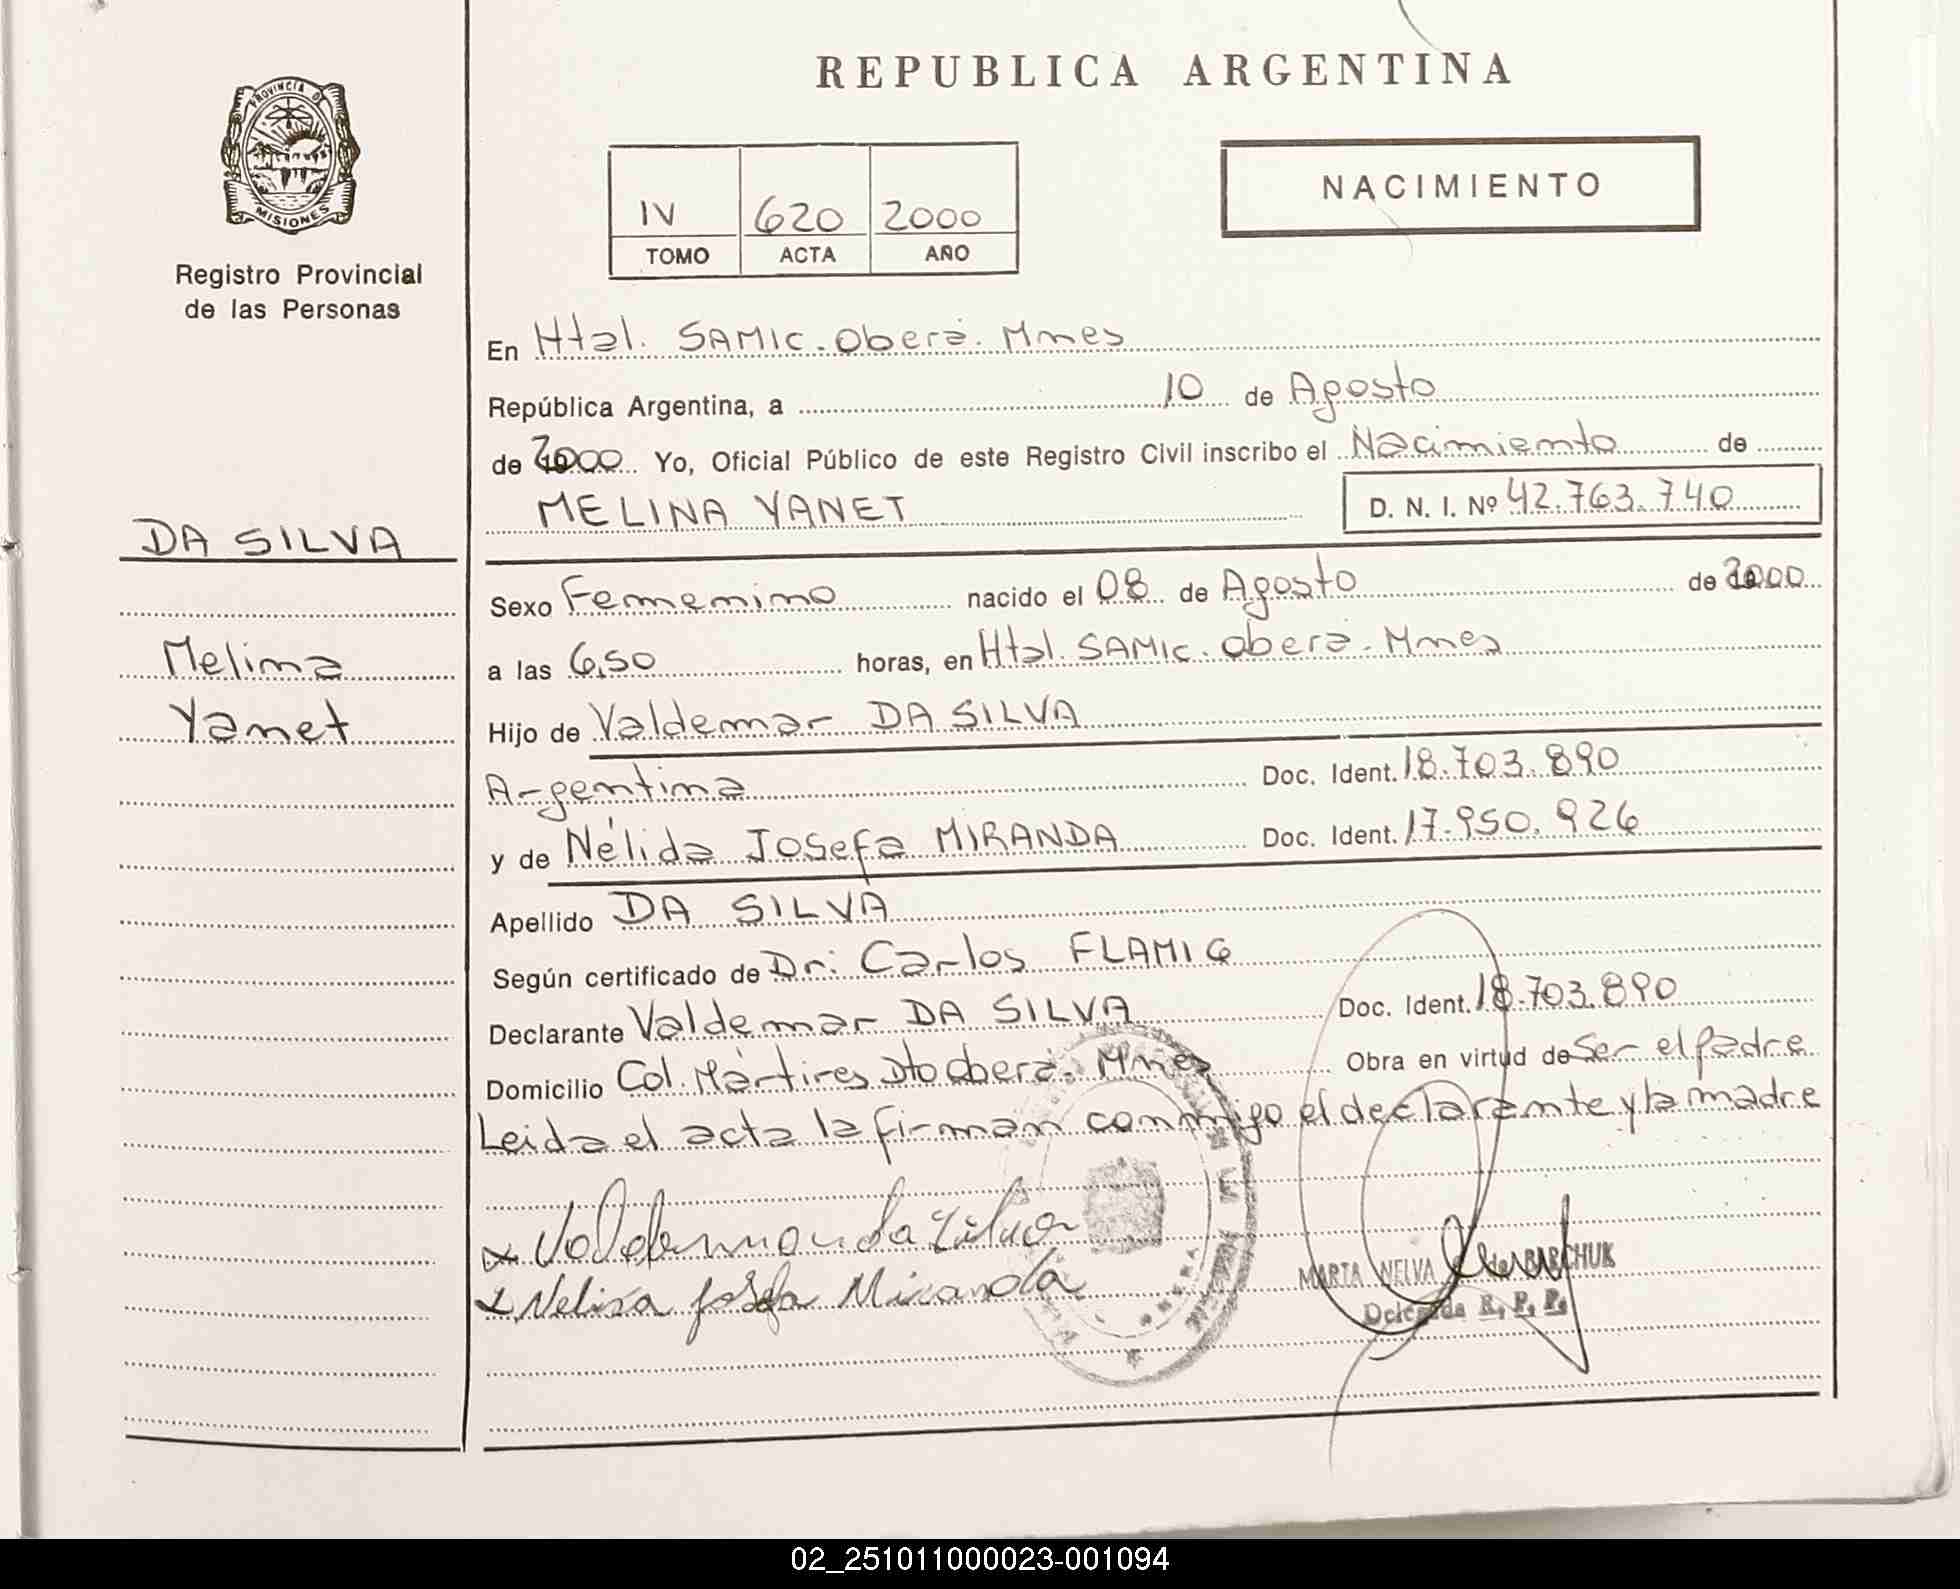 REPUBLICA ARGENTINA
PROVINCIA DE
MISIONES
Registro Provincial
de las Personas
NACIMIENTO
IV 620 2000
TOMO ACTA AÑO
En Htal. SAMIC. Oberá. Mnes
República Argentina, a 10 de Agosto
de 2000 Yo, Oficial Público de este Registro Civil inscribo el Nacimiento de
MELINA YANET D. N. I. Nº 42.763.740
DA SILVA
Melina
Yanet
Sexo Femenino nacido el 08 de Agosto de 2000
a las 6,50 horas, en Htal. SAMIC. Oberá. Mnes
Hijo de Valdemar DA SILVA
Argentina Doc. Ident. 18.703.890
y de Nélida Josefa MIRANDA Doc. Ident. 17.950.926
Apellido DA SILVA
Según certificado de Dr: Carlos FLAMIG
Declarante Valdemar DA SILVA Doc. Ident. 18.703.890
Domicilio Col. Mártires Dto Oberá. Mnes Obra en virtud de Ser el padre
Leida el acta la firman conmigo el declarante y la madre
x Valdemar da Silva
x Nelida Josefa Miranda
MARTA NELVA BARCHUK
Delegada R. P. P.
02_251011000023-001094